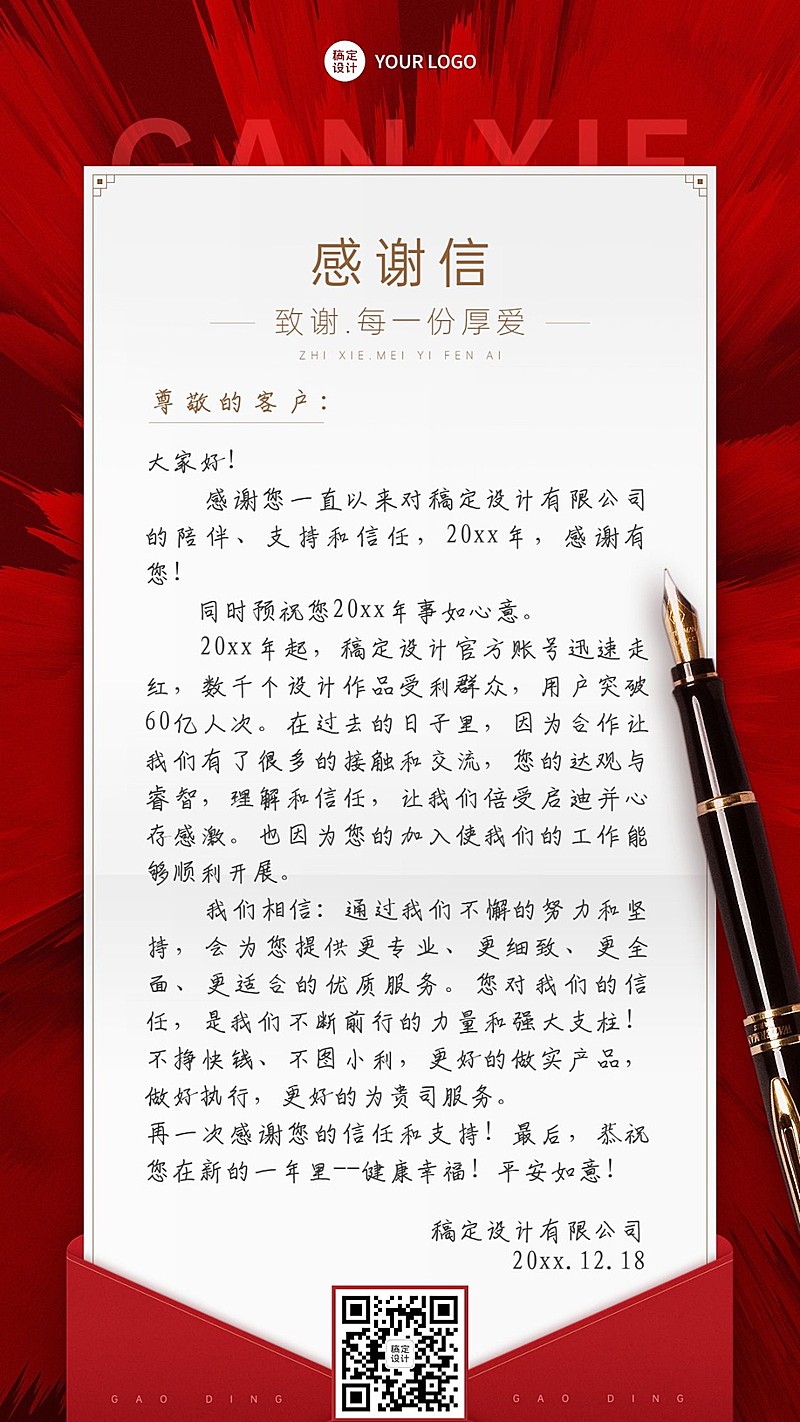 稿定
设计
YOUR LOGO
GAN XIE
感谢信
致谢.每一份厚爱
ZHI XIE.MEI YI FEN AI
尊敬的客户：
大家好！
感谢您一直以来对稿定设计有限公司
的陪伴、支持和信任，20xx年，感谢有
您！
同时预祝您20xx年事如心意。
20xx年起，稿定设计官方账号迅速走
红，数千个设计作品受利群众，用户突破
60亿人次。在过去的日子里，因为合作让
我们有了很多的接触和交流，您的达观与
睿智，理解和信任，让我们倍受启迪并心
存感激。也因为您的加入使我们的工作能
够顺利开展。
我们相信：通过我们不懈的努力和坚
持，会为您提供更专业、更细致、更全
面、更适合的优质服务。您对我们的信
任，是我们不断前行的力量和强大支柱！
不挣快钱、不图小利，更好的做实产品，
做好执行，更好的为贵司服务。
再一次感谢您的信任和支持！最后，恭祝
您在新的一年里--健康幸福！平安如意！
稿定设计有限公司
20xx.12.18
稿定
设计
GAO DING
GAO DING